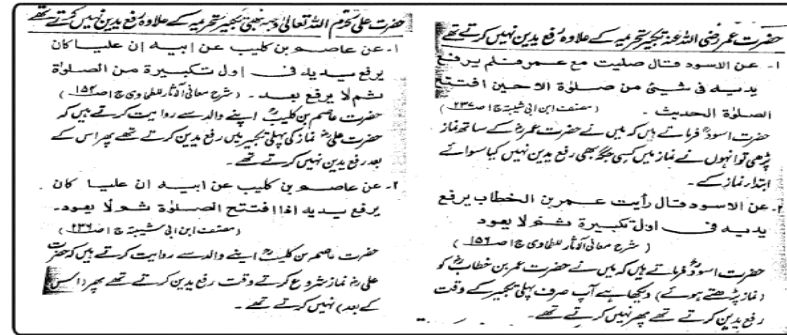 حضرت عمر رضی اللہ عنہ تکبیر تحریمہ کے علاوہ رفع یدین نہیں کرتے تھے
۱- عن الاسود قال صلیت مع عمر فلم یرفع
یدیہ فی شیئ من صلاۃ الا حین افتتح
الصلوٰۃ الحدیث - (مصنف ابن ابی شیبۃ ج۱ ص۲۳۷)
حضرت اسودؒ فرماتے ہیں کہ میں نے حضرت عمرؓ کے ساتھ نماز
پڑھی تو انہوں نے نماز میں کسی جگہ بھی رفع یدین نہیں کیا سوائے
ابتدار نماز کے -
۲- عن الاسود قال رأیت عمر بن الخطاب یرفع
یدیہ فی اول تکبیرۃ ثم لا یعود
(شرح معانی الآثار للطحاوی ج۱ ص۱۵۶)
حضرت اسودؒ فرماتے ہیں کہ میں نے حضرت عمر بن خطابؓ کو
(نماز پڑھتے ہوئے) دیکھا ہے آپ صرف پہلی تکبیر کے وقت
رفع یدین کرتے تھے پھر نہیں کرتے تھے -
حضرت علی کرم اللہ تعالیٰ وجہہ بھی تکبیر تحریمہ کے علاوہ رفع یدین نہیں کرتے تھے
۱- عن عاصم بن کلیب عن ابیہ ان علیا کان
یرفع یدیہ فی اول تکبیرۃ من الصلوٰۃ
ثم لا یرفع بعد - (شرح معانی الآثار للطحاوی ج۱ ص۱۵۴)
حضرت عاصم بن کلیبؒ اپنے والد سے روایت کرتے ہیں کہ
حضرت علیؓ نماز کی پہلی تکبیر میں رفع یدین کرتے تھے پھر اس کے
بعد رفع یدین نہیں کرتے تھے -
۲- عن عاصم بن کلیب عن ابیہ ان علیا کان
یرفع یدیہ اذا افتتح الصلوٰۃ ثم لا یعود -
(مصنف ابن ابی شیبۃ ج۱ ص۲۳۶)
حضرت عاصم بن کلیبؒ اپنے والد سے روایت کرتے ہیں کہ حضرت
علیؓ نماز شروع کرتے وقت رفع یدین کرتے تھے پھر (اس
کے بعد) نہیں کرتے تھے -